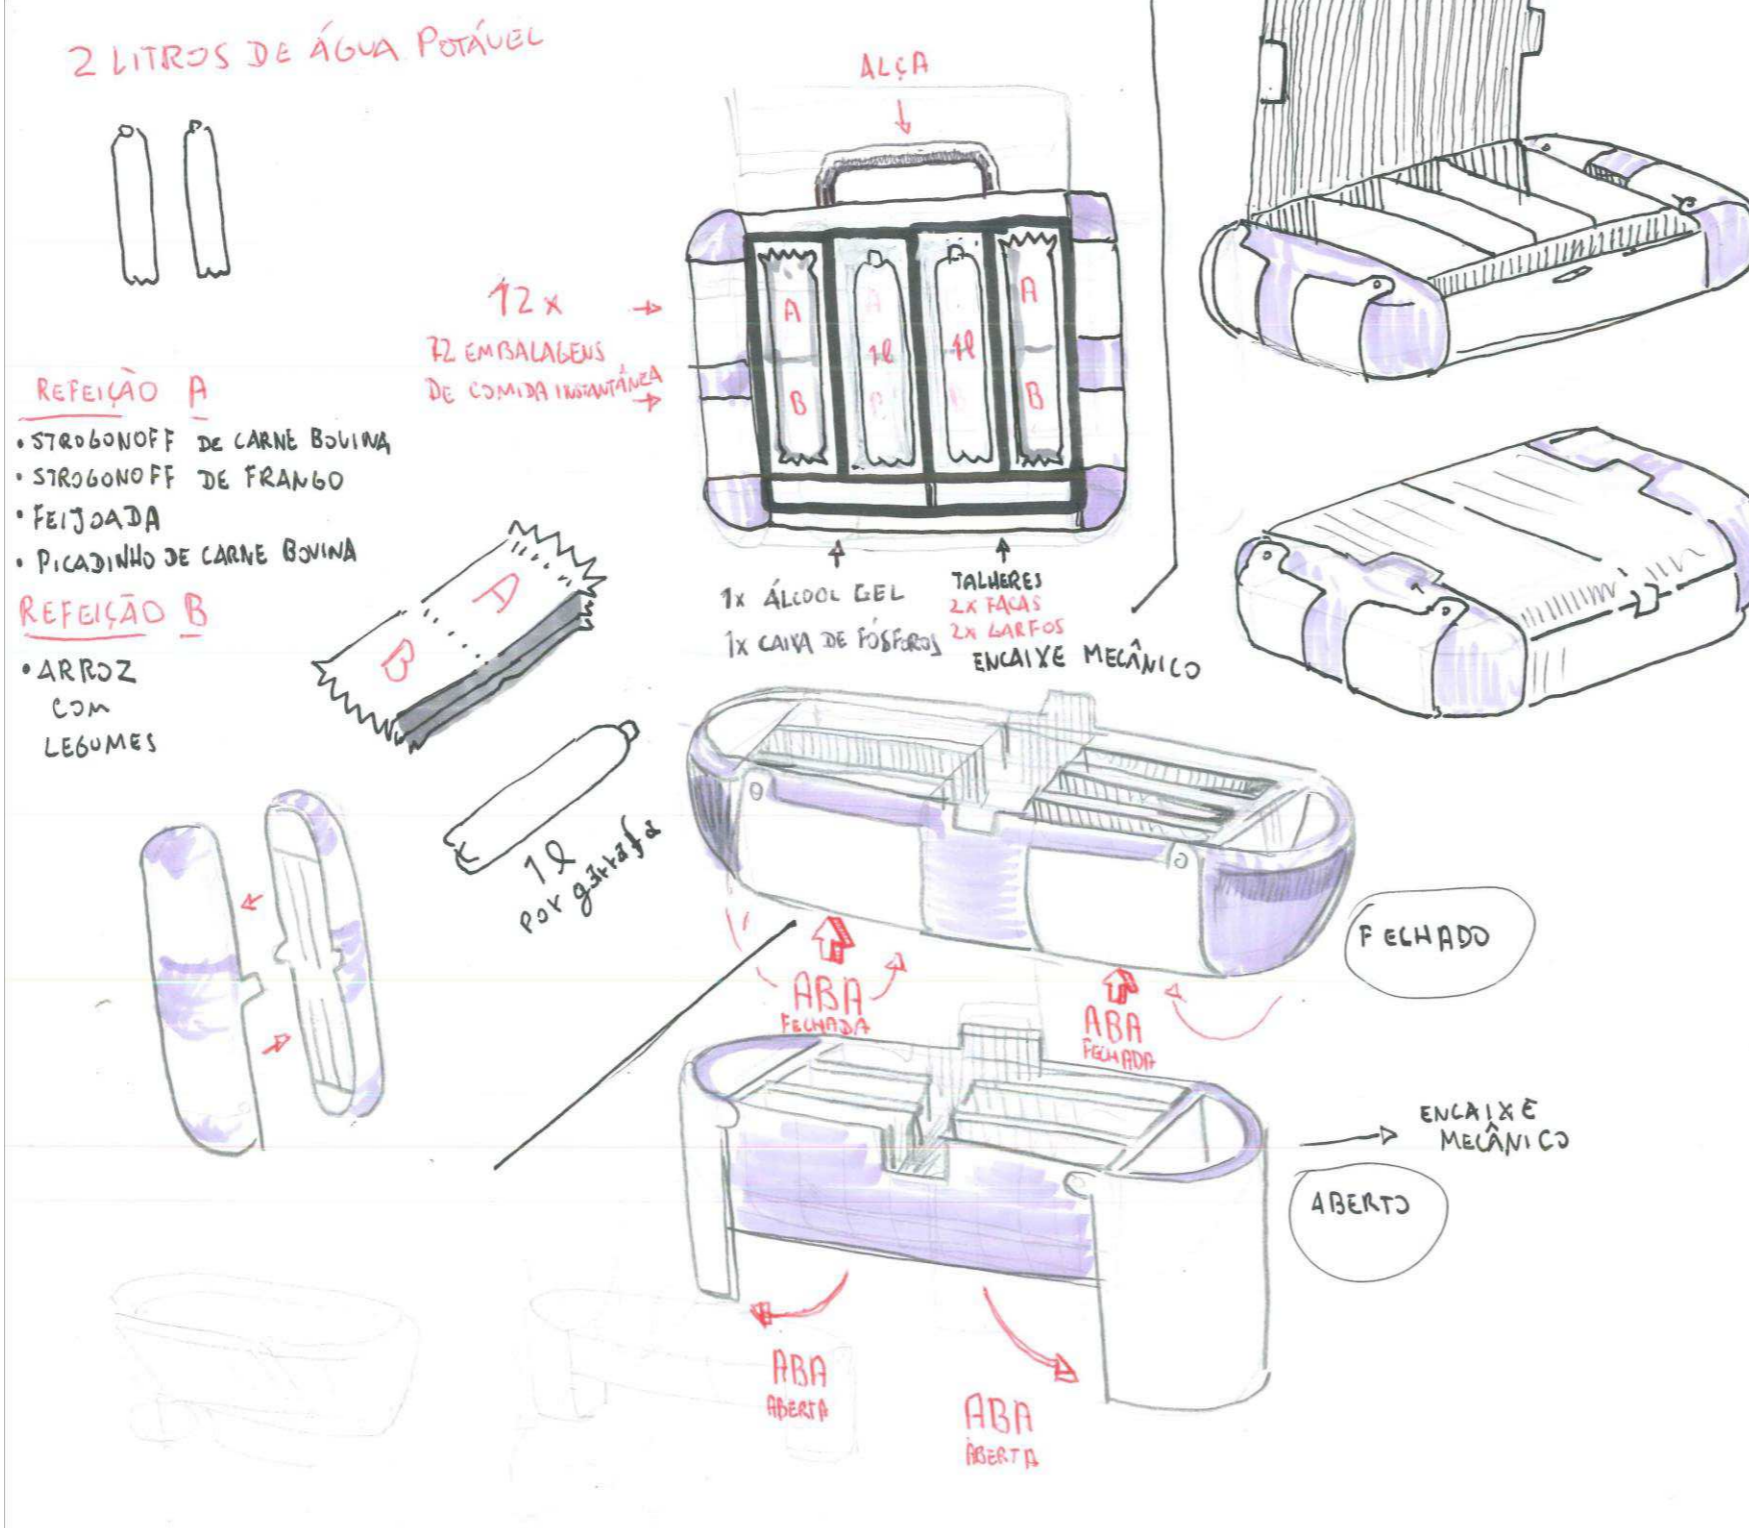 2 LITROS DE ÁGUA POTÁVEL
ALÇA
12 x
12 EMBALAGENS
DE COMIDA INSTANTÂNEA
A
B
1l
1l
A
B
REFEIÇÃO A
• STROGONOFF DE CARNE BOVINA
• STROGONOFF DE FRANGO
• FEIJOADA
• PICADINHO DE CARNE BOVINA
REFEIÇÃO B
• ARROZ
COM
LEGUMES
A
B
1l
por garrafa
1x ÁLCOOL GEL
1x CAIXA DE FÓSFOROS
TALHERES
2x FACAS
2x GARFOS
ENCAIXE MECÂNICO
FECHADO
ABA
FECHADA
ABA
FECHADA
ENCAIXE
MECÂNICO
ABERTO
ABA
ABERTA
ABA
ABERTA